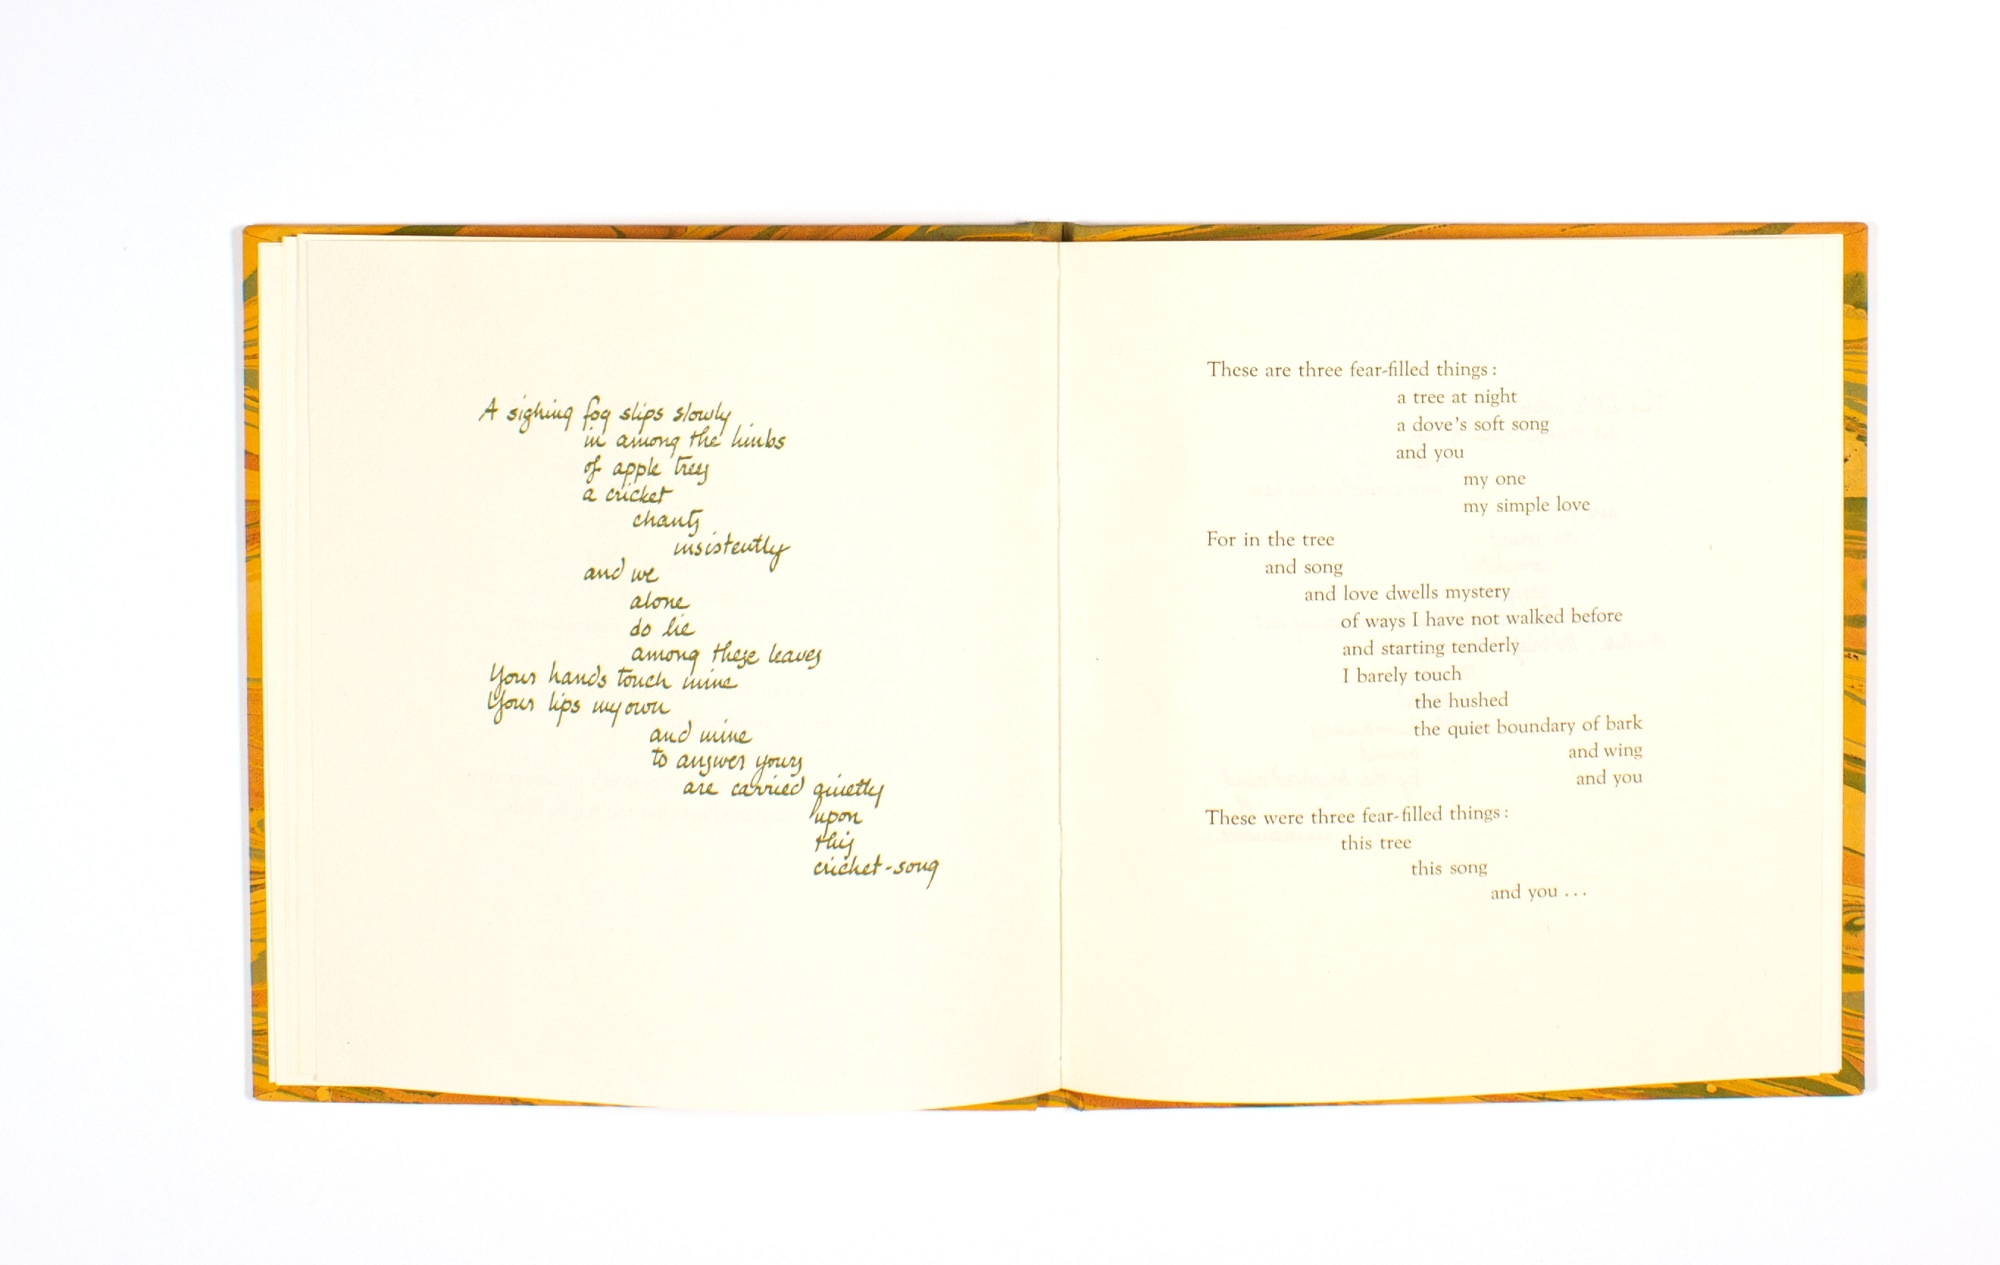 A sighing fog slips slowly
in among the limbs
of apple trees
a cricket
chants
insistently
and we
alone
do lie
among these leaves
Your hands touch mine
Your lips my own
and mine
to answer yours
are carried quietly
upon
this
cricket-song
These are three fear-filled things:
a tree at night
a dove's soft song
and you
my one
my simple love
For in the tree
and song
and love dwells mystery
of ways I have not walked before
and starting tenderly
I barely touch
the hushed
the quiet boundary of bark
and wing
and you
These were three fear-filled things:
this tree
this song
and you ...